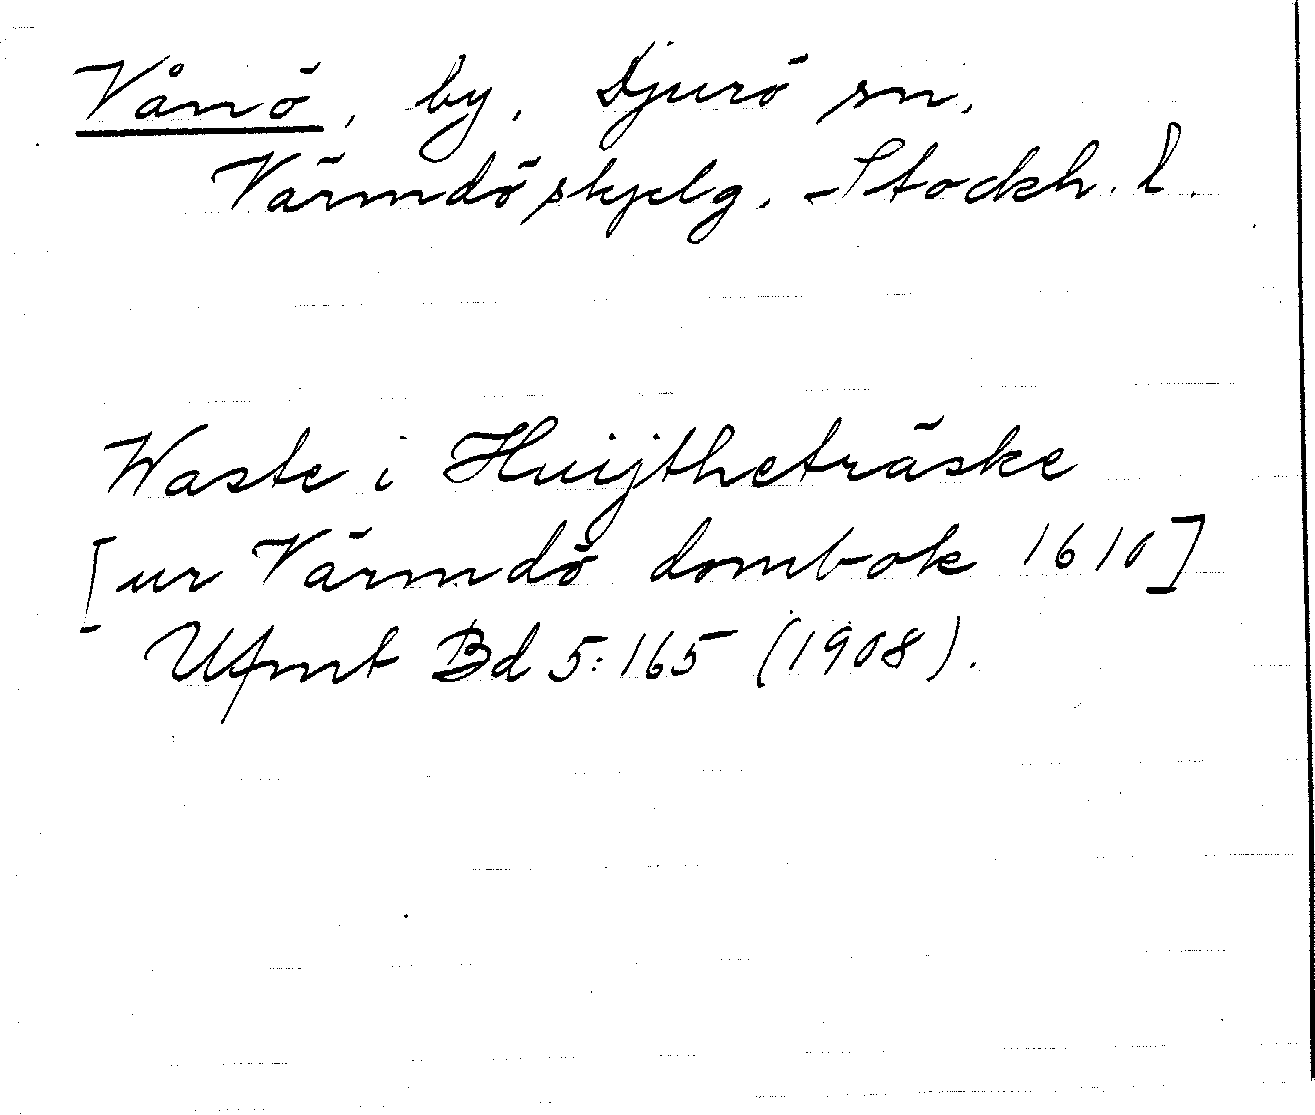 Vånö, by, Djurö sn,
Värmdö skjelg. Stockh. l.
Waste i Huijtheträske
[ur Värmdö dombok 1610]
Ufmt Bd 5:165 (1908).